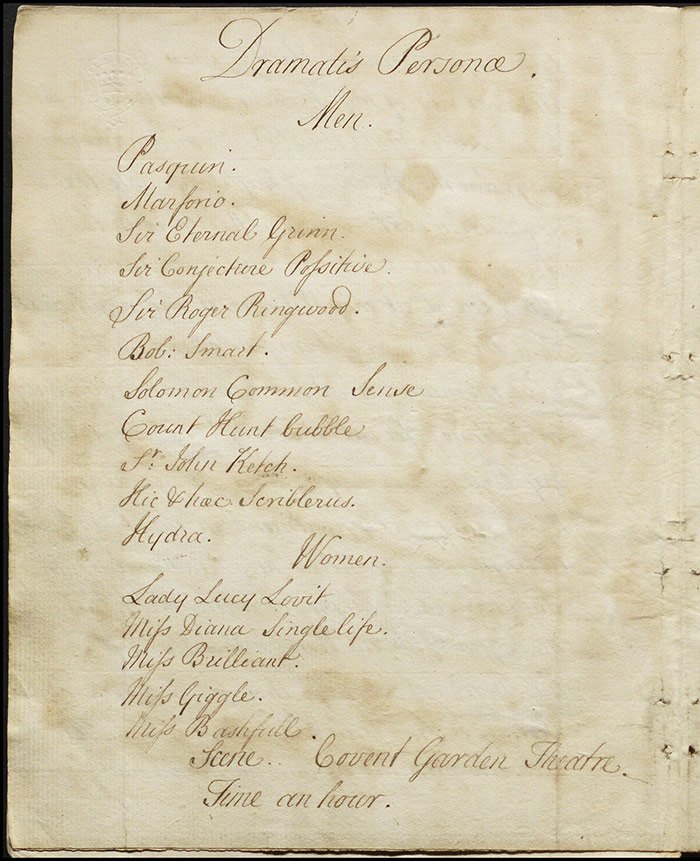 Dramatis Personæ.
Men.
Pasquin.
Marforio.
Sir Eternal Grinn.
Sir Conjecture Possitive.
Sir Roger Ringwood.
Bob: Smart.
Solomon Common Sense
Count Hunt bubble
Sr. John Ketch.
Hic & hæc Scriblerus.
Hydra.
Women.
Lady Lucy Lovit
Miss Diana Singlelife.
Miss Brilliant.
Miss Giggle.
Miss Bashfull.
Scene.. Covent Garden Theatre.
Time an hour.